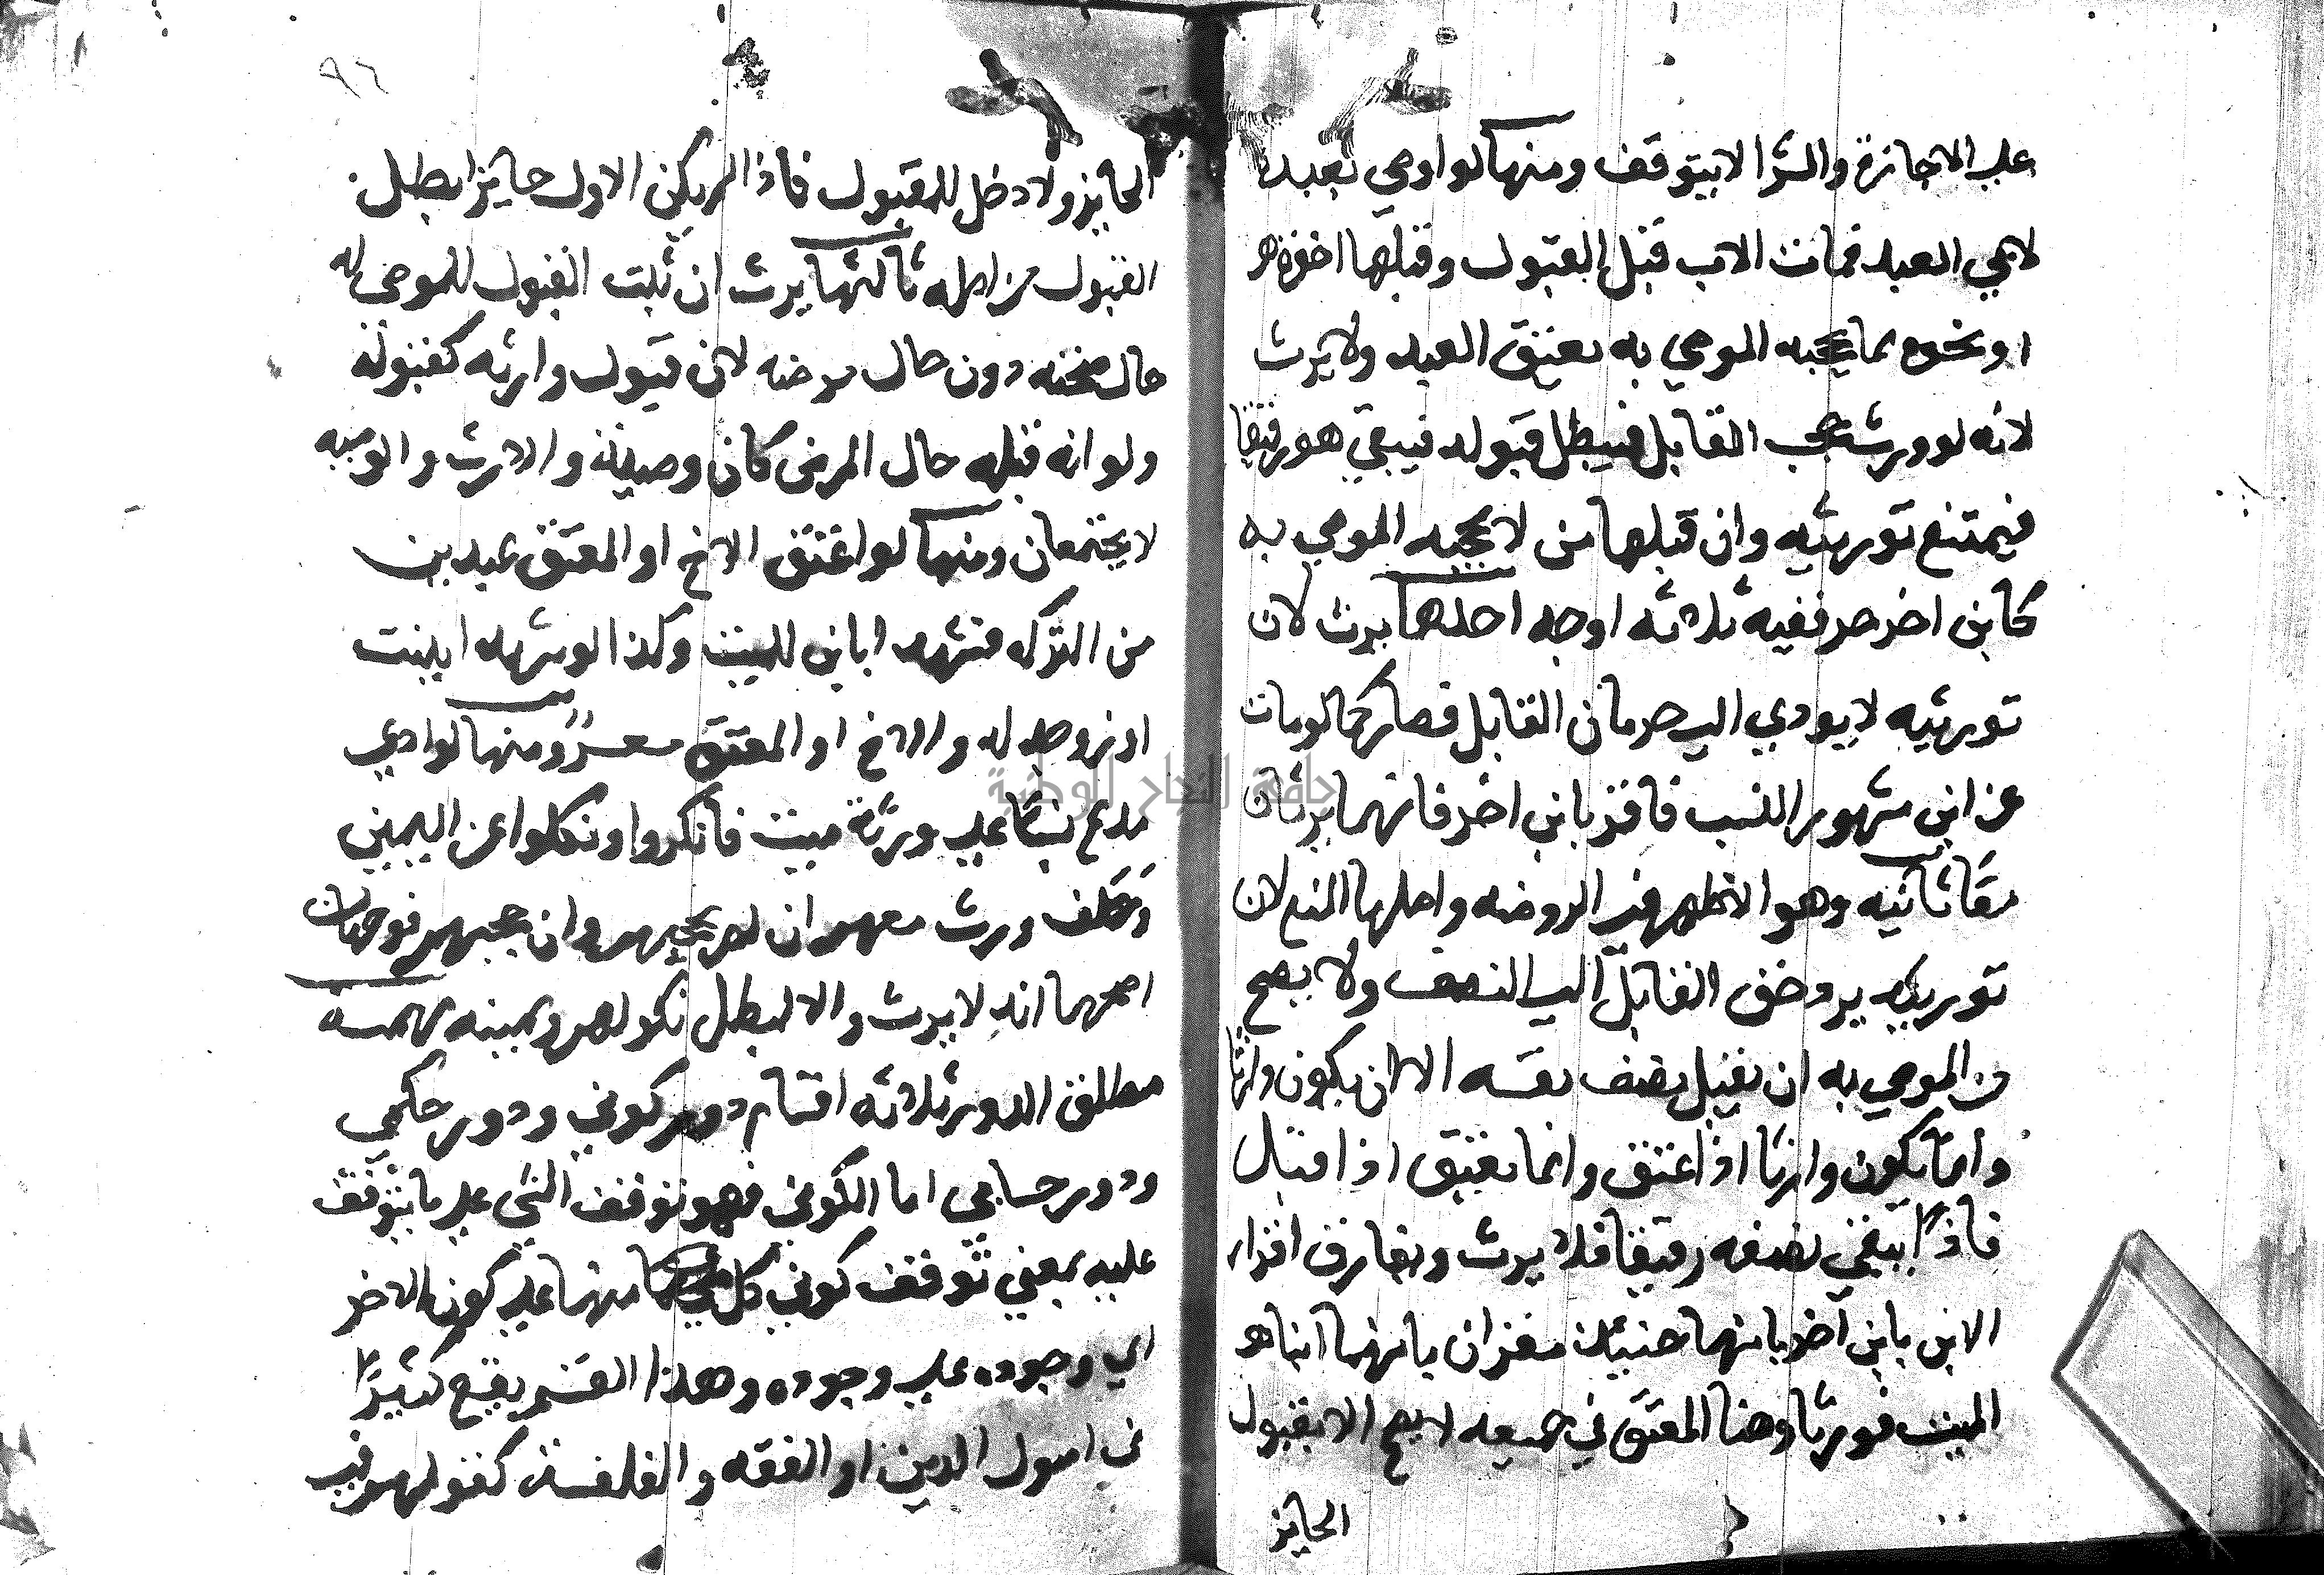 علي الاجازة والشرا لا يتوقف ومنها لو اوصي بعبد
لابي العبد فمات الاب قبل القبول وقبلها اخوه
او نحوه مما يحجبه الموصي به يعتق العبد ولا يرث
لانه لو ورث حجب القابل فيبطل قبوله فيبقي هو رقيقا
فيمتنع توريثه وان قبلها من لا يحجبه الموصي به
كابن اخر حر ففيه ثلاثه اوجه احدها يرث لان
توريثه لا يودي الي حرمان القابل فصار كما لو مات
عن ابن مشهور النسب فاقر بابن اخر فانهما يرثان
معا ثانيه وهو الاظهر في الروضه واصلها المنع لان
توريثه يرد حق القابل الي النصف ولا يصح
من الموصي به ان يقبل نصف نفسه الا ان يكون وارثا
وانما يكون وارثا اذا عتق وانما يعتق اذا قبل
فاذا يبقي نصفه رقيقا فلا يرث ويفارق اقرار
الابن بابن اخر بانهما حينئذ مقران بانهما ابنا
الميت فورثا وهنا العتق في جميعه لا يصح الا بقبول
الحايز
٩٦
الحايز ولا دخل للمقبول فاذا لم يكن الاول حايزا بطل
القبول من اصله ثالثها يرث ان ثبت القبول للموصي له
حال صحته دون حال مرضه لان قبول وارثه كقبوله
ولو انه قبله حال المرض كان وصية والارث والوصيه
لا يجتمعان ومنها لو اعتق الاخ او المعتق عبدين
من التركه فشهدا بابن للميت وكذا لو شهدا ببنت
او زوجه له والاخ او المعتق معسر ومنها لو ادعي
مدع نسبا علي ورثة ميت فانكروا ونكلوا عن اليمين
وحلف ورث معهم ان لم يحجبهم وان حجبهم فوجهان
اصحهما انه لا يرث والا لبطل نكولهم ويمينه مهمه
مطلق الدور ثلاثه اقسام دور كوني ودور حكمي
ودور حسابي اما الكوني فهو توقف الشي علي ما يتوقف
عليه بمعني توقف كون كل منهما علي كون الاخر
اي وجوده علي وجوده وهذا القسم يقع كثيرا
في اصول الدين او الفقه والفلسفة كقولهم في
جامعة النجاح الوطنية